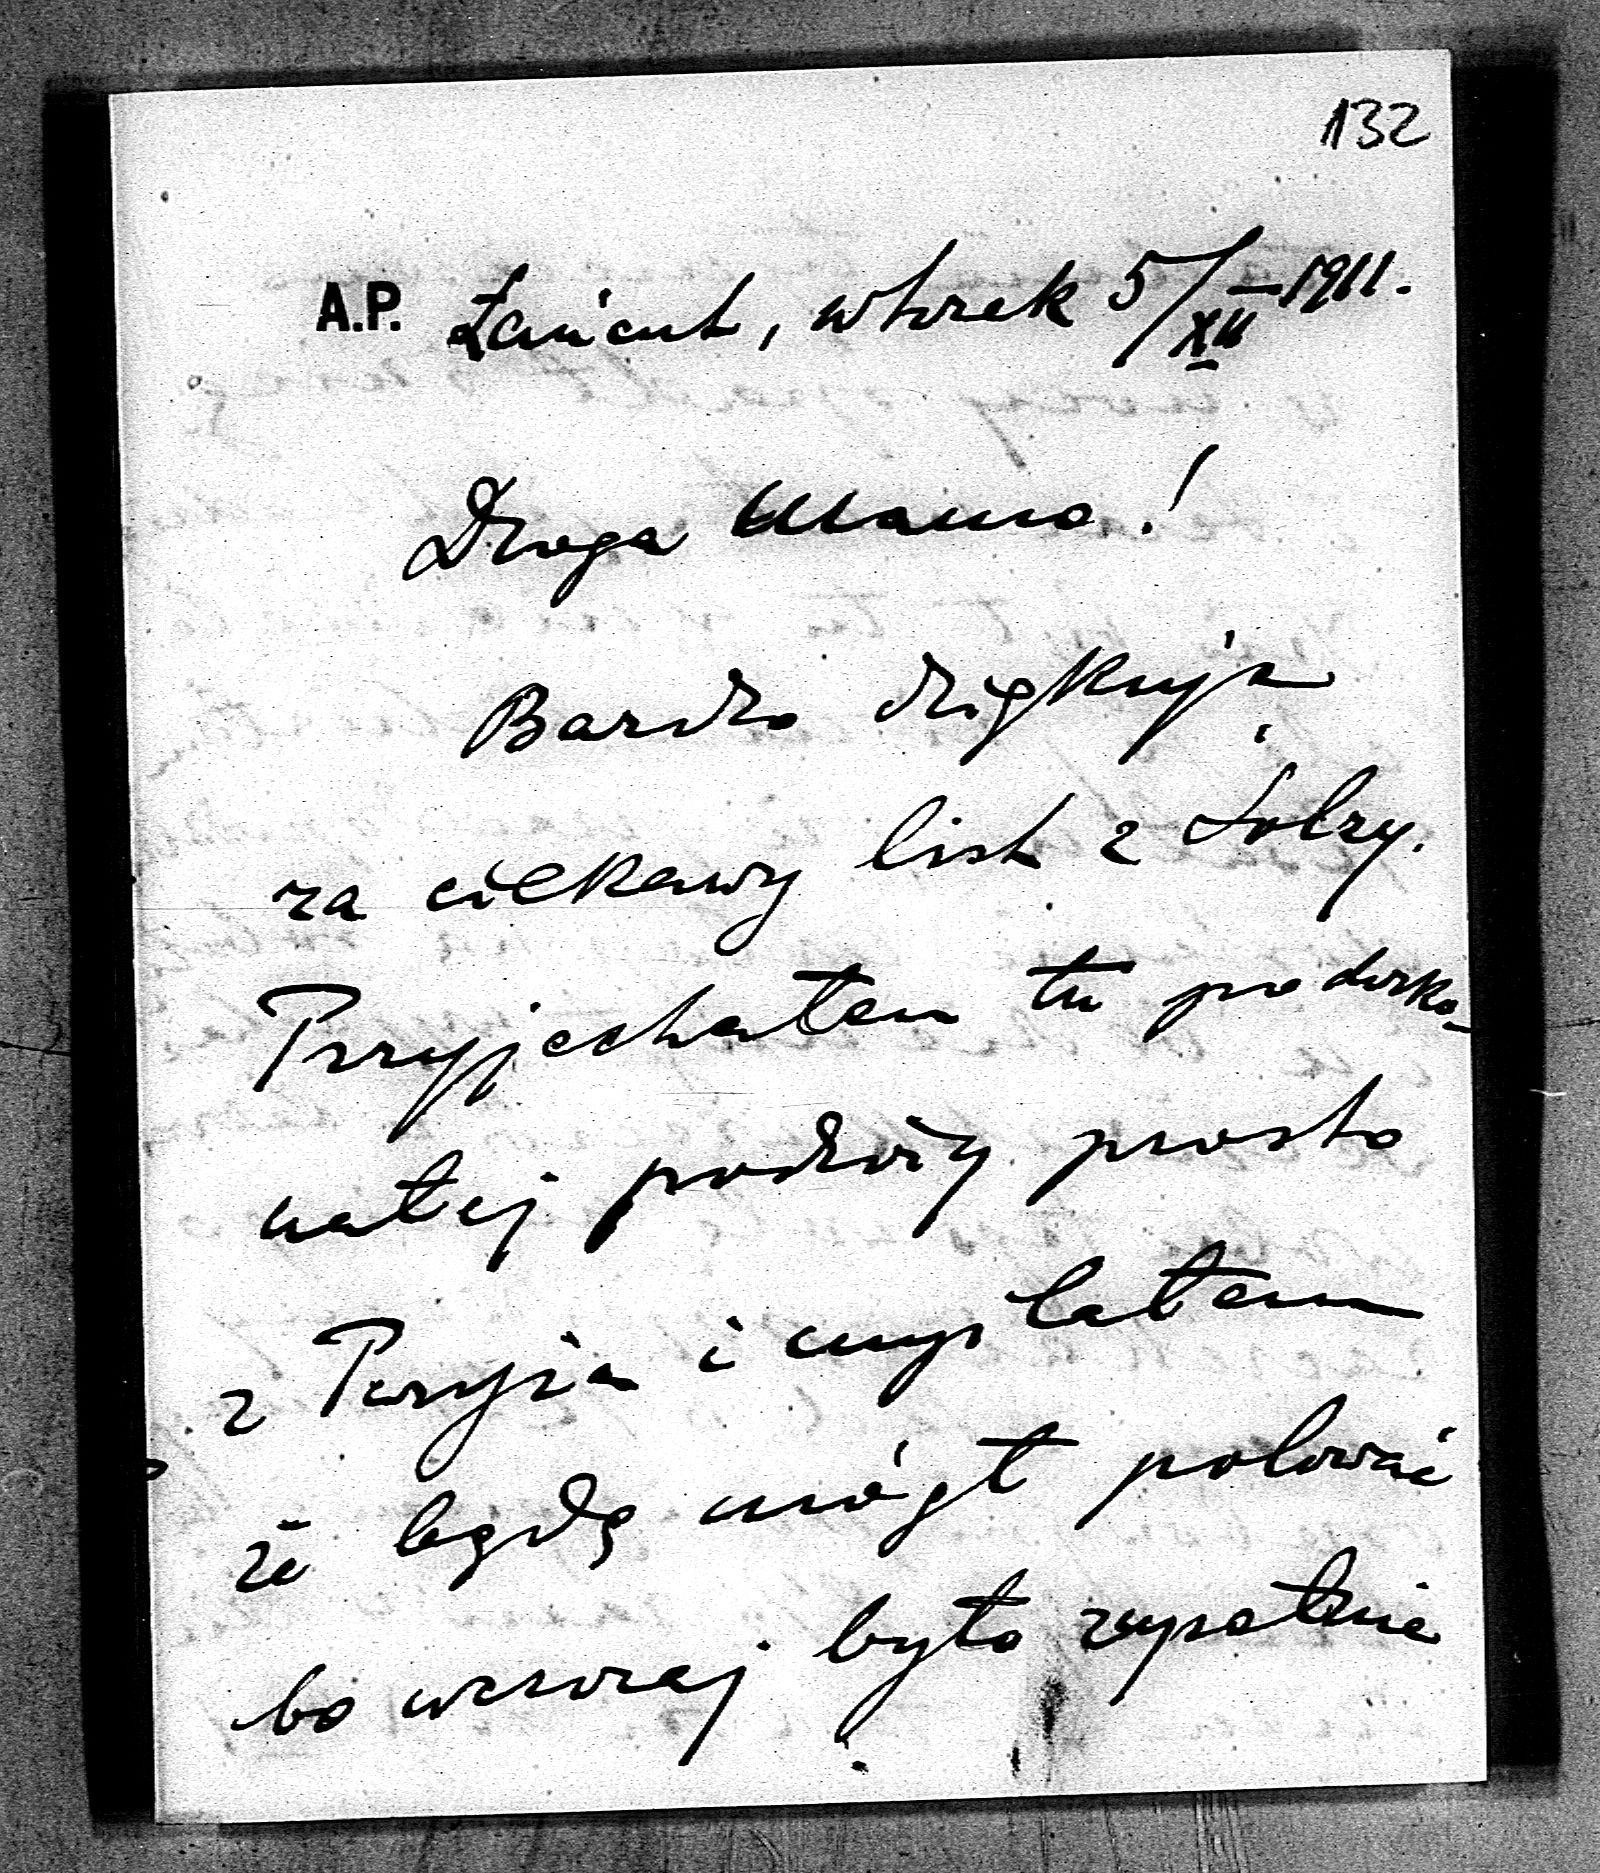 132
A.P. Łańcut, wtorek 5/XII 1911.
Droga Mamo!
Bardzo dziękuję
za ciekawy list z Solzy.
Przyjechałem tu po dosko-
nałej podróży prosto
z Paryża i myślałem
że będę mógł polować
bo wczoraj było zupełnie